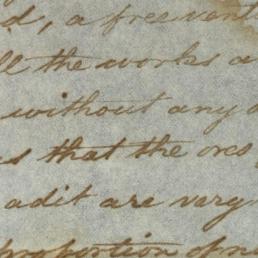 d, a free vent
ll the works a
without any
s that the ores
adit are very
proportion of